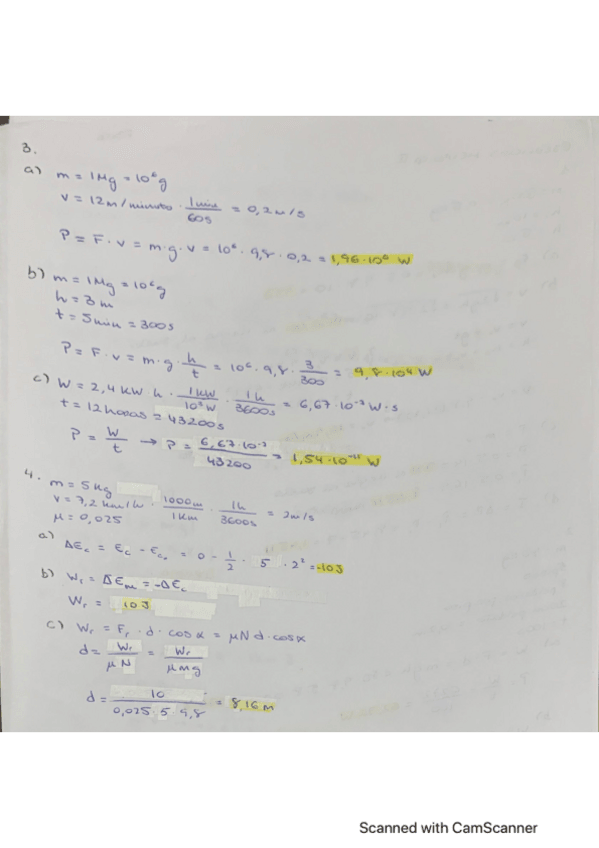 3.
a) m = 1Mg = 10⁶g
v = 12m/minutos · 1min/60s = 0,2m/s
P = F · v = m·g·v = 10⁶ · 9,8 · 0,2 = 1,96·10⁶ W
b) m = 1Mg = 10⁶g
h = 3m
t = 5min = 300s
P = F·v = m·g·h/t = 10⁶·9,8·3/300 = 9,8·10⁴W
c) W = 2,4KW h · 1KW/10³W · 1h/3600s = 6,67·10⁻⁷W·s
t = 12horas = 43200s
P = W/t → P = 6,67·10⁻⁷/43200 = 1,54·10⁻¹¹ W
4. m = 5Kg
v = 7,2km/h · 1000m/1Km · 1h/3600s = 2m/s
μ = 0,025
a) ΔEc = Ec - Ec₀ = 0 - 1/2 · 5 · 2² = -10J
b) Wr = ΔEm = -ΔEc
Wr = 10J
c) Wr = Fr · d · cosα = μNd·cosα
d = Wr/μN = Wr/μmg
d = 10/0,025·5·9,8 = 8,16m
Scanned with CamScanner